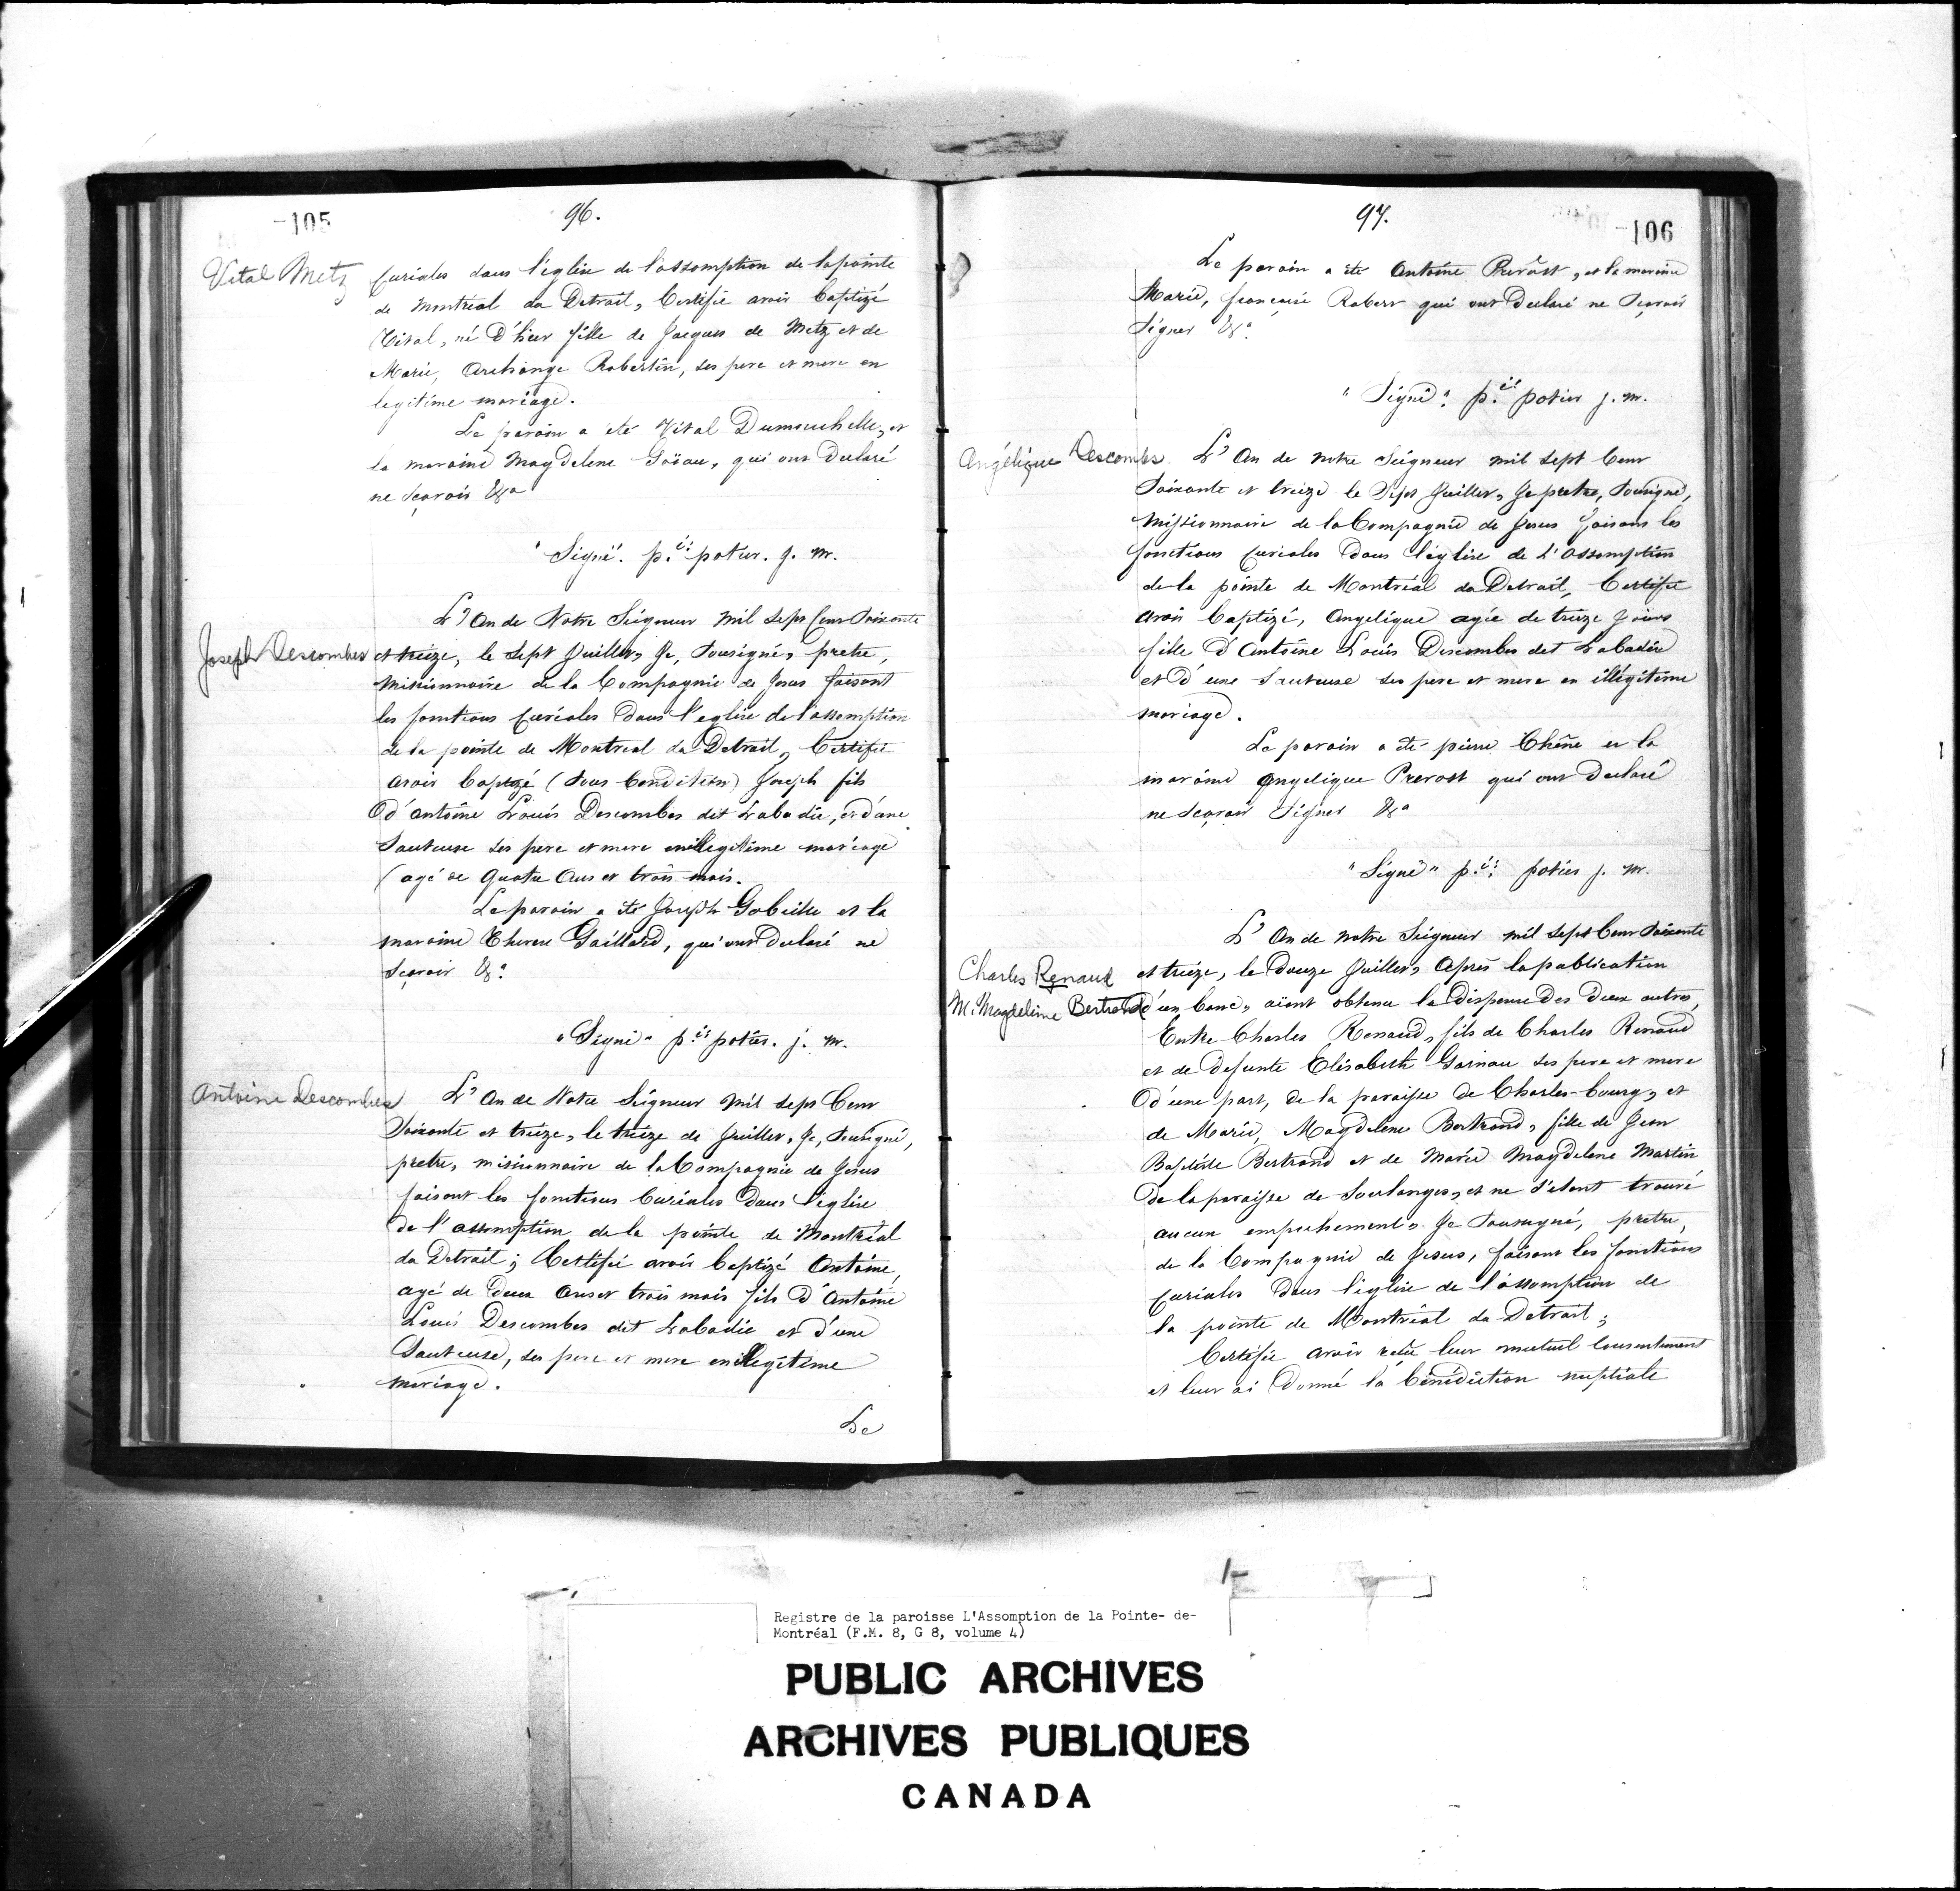 -105
96.
Vital Metz
curiales dans l'église de l'assomption de la pointe
de Montreal du Detroit, Certifie avoir baptizé
Vital, né d'hier fille de Jacques de Metz et de
Marie, Archange Robertin, ses pere et mere en
legitime mariage.
Le parain a été Vital Dumouchelle, et
la maraine Magdelene Goïau, qui ont declaré
ne sçavoir &a
"Signé". p.re potier. j. m.
Joseph Descombes
L'An de Notre Seigneur mil sept cent soixante
et treize, le sept Juillet, Je, sousigné, pretre,
missionnaire de la Compagnie de Jesus faisant
les fonctions curiales dans l'eglise de l'assomption
de la pointe de Montreal du Detroit, Certifie
avoir baptizé (sous Condition) Joseph fils
d'antoine Louis Descombes dit Labadie, et d'une
Sauteuse ses pere et mere en illegitime mariage
(agé de quatre ans et trois mois.
Le parain a été Joseph Gobeille et la
maraine Therese Gaillard, qui ont declaré ne
sçavoir &a
"Signé" p.re potier. j. m.
Antoine Descombes
L'An de Notre Seigneur mil sept Cent
soixante et treize, le treize de Juillet, Je, sousigné,
pretre, missionnaire de la Compagnie de Jesus
faisant les fonctions Curiales dans l'église
de l'assomption de la pointe de Montréal
du Detroit; Certifie avoir baptizé Antoine,
agé de deux ans et trois mois fils d'Antoine
Louis Descombes dit Labadie et d'une
Sauteuse, ses pere et mere en illegitime
mariage.
Le
97.
-106
Le parain a été Antoine Prevost, et la maraine
Marie, françoise Robert qui ont declaré ne sçavoir
signer &a.
"Signé". p.re potier j. m.
Angélique Descombes
L'An de notre Seigneur mil sept Cent
soixante et treize le sept Juillet, Je pretre, sousigné,
missionnaire de la Compagnie de Jesus faisans les
fonctions curiales dans l'église de l'assomption
de la pointe de Montréal du Detroit, Certifie
avoir baptizé, Angelique agée de treize jours
fille d'Antoine Louis Descombes dit Labadie
et d'une Sauteuse ses pere et mere en illégitime
mariage.
Le parain a été pierre Chêne et la
maraine Angelique Prevost qui ont declaré
ne scavoir signer &a
"Signé" p.re potier j. m.
Charles Renaud
M. Magdeleine Bertrand
L'An de notre Seigneur mil sept Cent soixante
et treize, le douze Juillet, Après la publication
d'un banc, aïant obtenu la dispense des deux autres,
Entre Charles Renaud, fils de Charles Renaud
et de defunte Elisabeth Garnau ses pere et mere
d'une part, de la paroisse de Charles-bourg, et
de Marie, Magdelene Bertrand, fille de Jean
Baptiste Bertrand et de Marie Magdelene Martin
de la paroisse de Soulanges, et ne s'etant trouvé
aucun empechement, Je sousigné, pretre,
de la Compagnie de Jesus, faisant les fonctions
curiales dans l'église de l'assomption de
la pointe de Montréal du Detroit;
Certifie avoir reçu leur mutuel consentement
et leur ai donné la bénédiction nuptiale
Registre de la paroisse L'Assomption de la Pointe- de-
Montréal (F.M. 8, G 8, volume 4)
PUBLIC ARCHIVES
ARCHIVES PUBLIQUES
CANADA